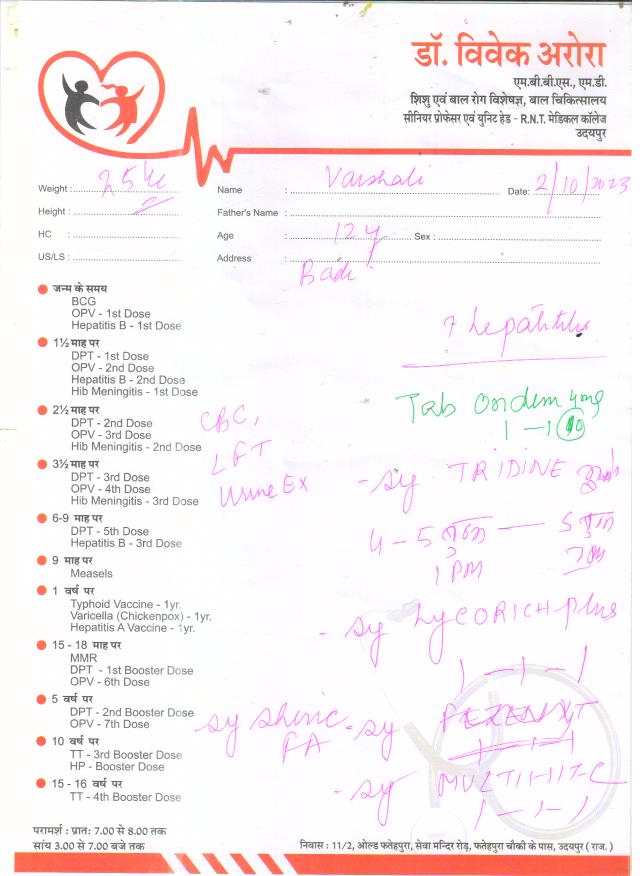 डॉ. विवेक अरोरा
एम.बी.बी.एस., एम.डी.
शिशु एवं बाल रोग विशेषज्ञ, बाल चिकित्सालय
सीनियर प्रोफेसर एवं युनिट हेड - R.N.T. मेडिकल कॉलेज
उदयपुर
Weight : 25 Name : Varshali Date: 2/10/2023
Height : Father's Name :
HC : Age : 12 y Sex :
US/LS : Address :
? hepatitis
Tab Ondem 4mg
1 - 1 (10)
CBC,
LFT
Urine Ex
- Sy TRIDINE
4 - 5 - 5
1 PM 7 PM
- Sy LYCORICH plus
1 - 1 - 1
Sy
- Sy
PA
- Sy
1 - 1 - 1
जन्म के समय
BCG
OPV - 1st Dose
Hepatitis B - 1st Dose
1½ माह पर
DPT - 1st Dose
OPV - 2nd Dose
Hepatitis B - 2nd Dose
Hib Meningitis - 1st Dose
2½ माह पर
DPT - 2nd Dose
OPV - 3rd Dose
Hib Meningitis - 2nd Dose
3½ माह पर
DPT - 3rd Dose
OPV - 4th Dose
Hib Meningitis - 3rd Dose
6-9 माह पर
DPT - 5th Dose
Hepatitis B - 3rd Dose
9 माह पर
Measels
1 वर्ष पर
Typhoid Vaccine - 1yr.
Varicella (Chickenpox) - 1yr.
Hepatitis A Vaccine - 1yr.
15 - 18 माह पर
MMR
DPT - 1st Booster Dose
OPV - 6th Dose
5 वर्ष पर
DPT - 2nd Booster Dose
OPV - 7th Dose
10 वर्ष पर
TT - 3rd Booster Dose
HP - Booster Dose
15 - 16 वर्ष पर
TT - 4th Booster Dose
परामर्श : प्रातः 7.00 से 8.00 तक
सांय 3.00 से 7.00 बजे तक
निवास : 11/2, ओल्ड फतेहपुरा, सेवा मन्दिर रोड़, फतेहपुरा चौकी के पास, उदयपुर ( राज. )